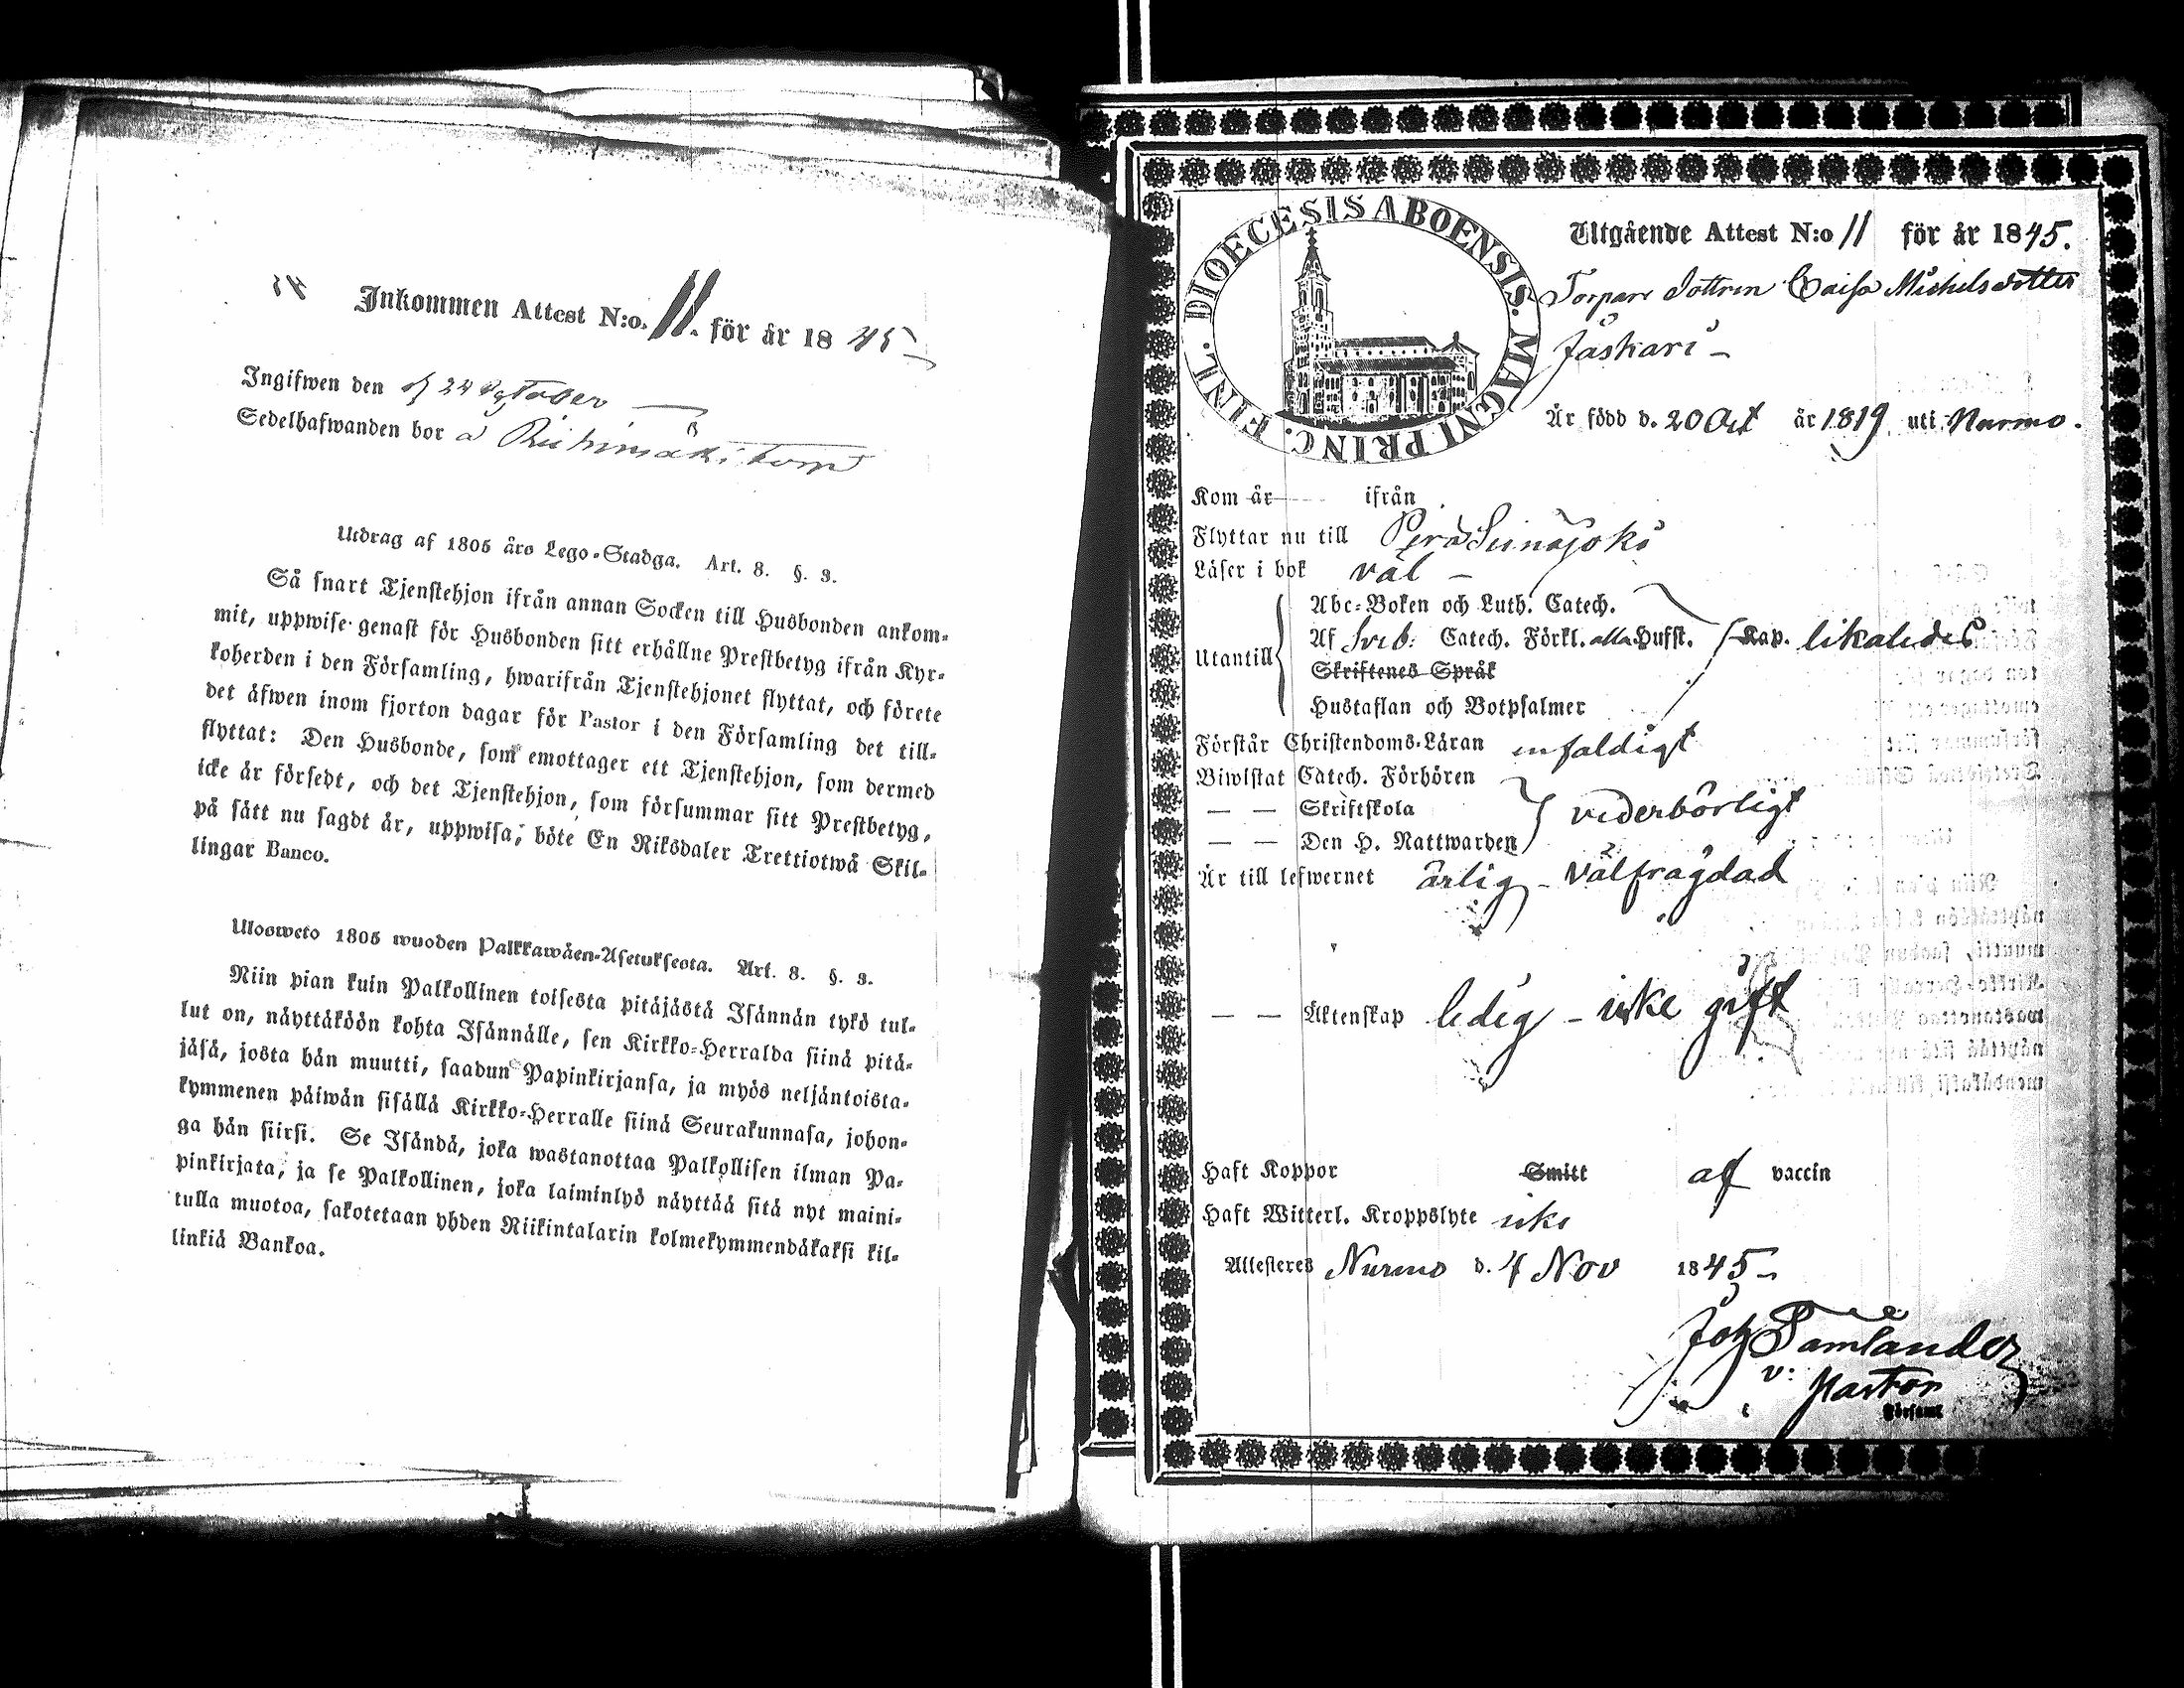 Inkommen Attest N:o. 11. för år 1845
Ingifwen den 24 October
Sedelhafwanden bor a
Utdrag af 1805 års Lego-Stadga. Art. 8. §. 3.
Så snart Tjenstehjon ifrån annan Socken till Husbonden ankom-
mit, uppwise genast för Husbonden sitt erhållne Prestbetyg ifrån Kyr-
koherden i den Församling, hwarifrån Tjenstehjonet flyttat, och förete
det äfwen inom fjorton dagar för Pastor i den Församling det till-
flyttat: Den Husbonde, som emottager ett Tjenstehjon, som dermed
icke är försedt, och det Tjenstehjon, som försummar sitt Prestbetyg,
på sätt nu sagdt är, uppwisa, böte En Riksdaler Trettiotwå Skil-
lingar Banco.
Ulosweto 1805 wuoden Palkkawäen-Asetuksesta. Art. 8. §. 3.
Niin pian kuin Palkollinen toisesta pitäjästä Isännän tykö tul-
lut on, näyttäköön kohta Isännälle, sen Kirkko-Herralda siinä pitä-
jäsä, josta hän muutti, saadun Papinkirjansa, ja myös neljäntoista-
kymmenen päiwän sisällä Kirkko-Herralle siinä Seurakunnasa, johon-
ga hän siirsi. Se Isändä, joka wastanottaa Palkollisen ilman Pa-
pinkirjata, ja se Palkollinen, joka laiminlyö näyttää sitä nyt maini-
tulla muotoa, sakotetaan yhden Riikintalarin kolmekymmendäkaksi kil-
linkiä Bankoa.
DIOECESIS ABOENSIS. MAGNI PRINC. FINL.
Utgående Attest N:o 11 för år 1845.
Torpare dottren Caisa Michelsdotter
Jäskari
Är född d. 20 Oct år 1819 uti Nurmo.
Kom år ifrån
Flyttar nu till Perä Seinäjoki
Läser i bok väl
Abc-Boken och Luth. Catech.
Utantill Af Sveb: Catech. Förkl. alla Hufst. Kap. likaledes
Skriftenes Språk
Hustaflan och Botpsalmer
Förstår Christendoms-Läran enfaldigt
Biwistat Catech. Förhören
— — Skriftskola vederbörligt
— — Den H. Nattwarden
Är till lefwernet ärlig - välfrägdad
— — Äktenskap ledig - icke gift
Haft Koppor Smitt af vaccin
Haft Witterl. Kroppslyte icke
Attesteres Nurmo d. 4 Nov 1845
Joh Tamlander
v: Pastor
Församl